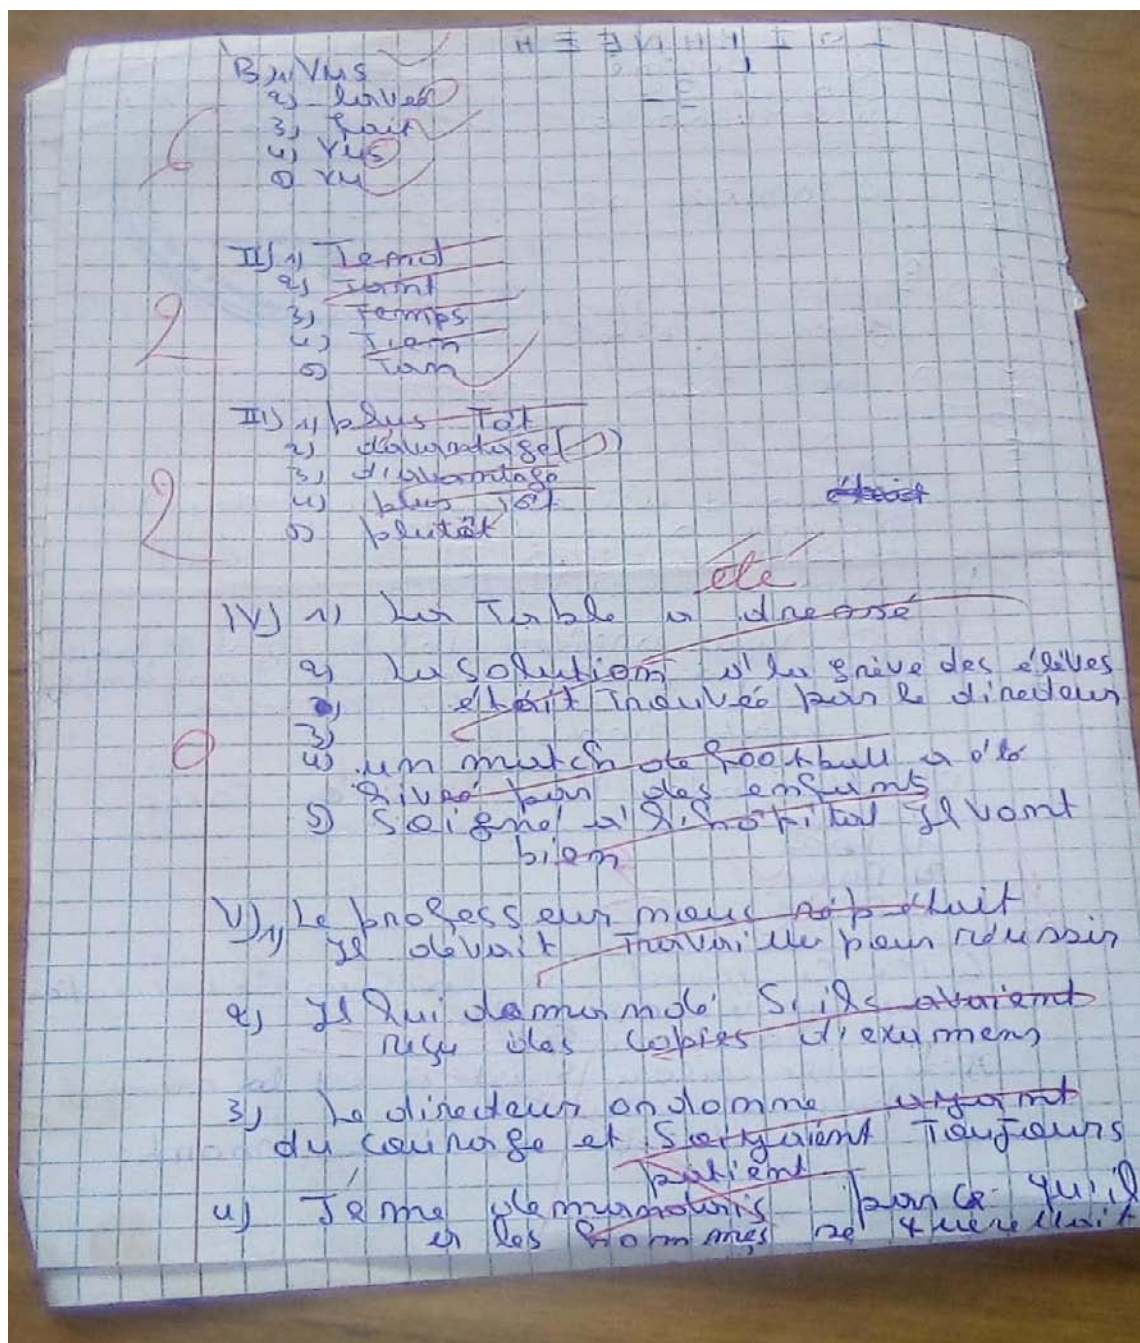 B 1) Vus
2) lavés
3) fait
4) Vus
5) vu
6
II) 1)
2) Tant
3) Temps
4) Tien
5) Tan
2
III) 1) plus Tôt
2) davantage
3) d'avantage
4) plus tôt
5) plutôt
2
été
IV) 1) La Table a dressé
2) La Solution à la grève des élèves
était Trouvée par le directeur
3)
4) un match de football a été
livré par des enfants
5) Soigné à l'hôpital Il vont
bien
0
V) 1) Le professeur nous
Il devait Travailler pour réussir
2) Il lui demandé S'ils avaient
reçu des copies d'examens
3) Le directeur ordonne ayant
du courage et Toujours
patient
4) Je me demandais par ce qu'il
a les hommes se querellait